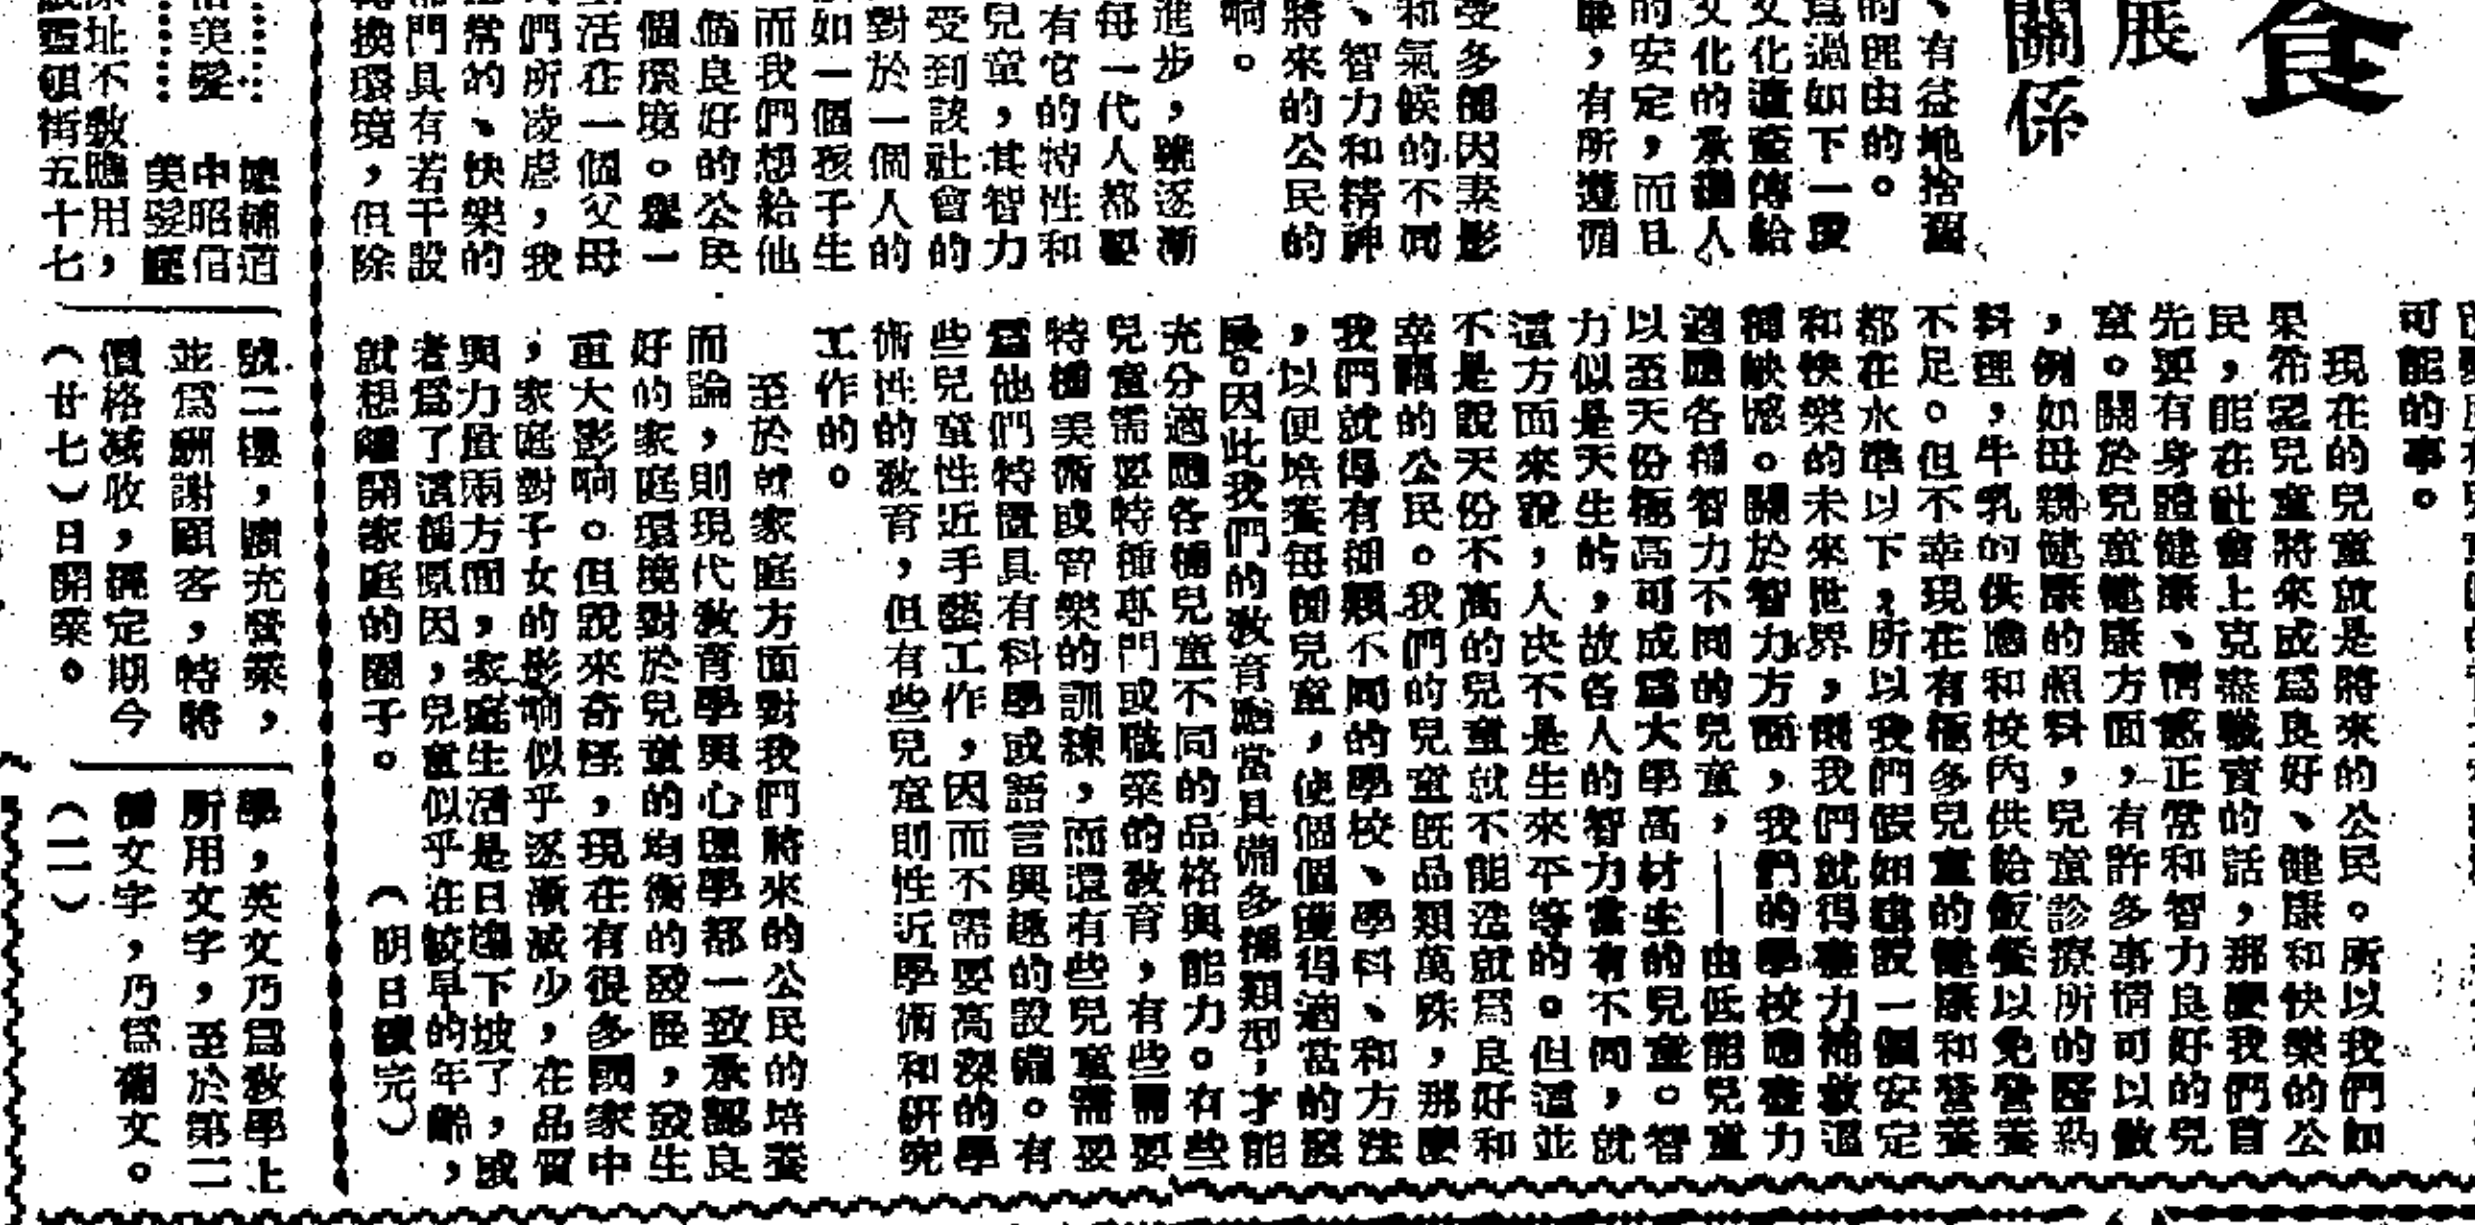 食
展
關係
、有益地捨舊
的匪由的。
為過如下一段
文化遺產傳給
文化的承繼人
的安定，而且
，有所遵循
受多種因素影
和氣候的不同
、智力和精神
將來的公民的
响。
進步，雖逐漸
每一代人都要
有它的特性和
兒童，其智力
受到該社會的
對於一個人的
如一個孩子生
而我們想給他
個良好的公民
個環境。舉一
活在一個父母
們所凌虐，我
常的、快樂的
門具有若干設
換環境，但除
可能的事。
現在的兒童就是將來的公民。所以我們如
果希望兒童將來成爲良好、健康和快樂的公
民，能在社會上克盡職責的話，那麼我們首
先要有身體健康、情感正常和智力良好的兒
童。關於兒童健康方面，有許多事情可以做
，例如母親健康的照料，兒童診療所的醫葯
料理，牛乳的供應和校內供給飯餐以免營養
不足。但不幸現在有極多兒童的健康和營養
都在水準以下，所以我們假如建設一個安定
和快樂的未來世界，則我們就得盡力補救這
種缺憾。關於智力方面，我們的學校應盡力
適應各種智力不同的兒童，——由低能兒童
以至天份極高可成爲大學高材生的兒童。智
力似是天生的，故各人的智力當有不同，就
這方面來說，人决不是生來平等的。但這並
不是說天份不高的兒童就不能造就爲良好和
幸福的公民。我們的兒童旣品類萬殊，那麼
我們就得有種類不同的學校、學科、和方法
，以便培養每個兒童，使個個獲得適當的發
展。因此我們的敎育應當具備多種類型，才能
充分適應各種兒童不同的品格與能力。有些
兒童需要特種專門或職業的敎育，有些需要
特種美術或音樂的訓練，而還有些兒童需要
爲他們特置具有科學或語言興趣的設備。有
些兒童性近手藝工作，因而不需要高深的學
術性的敎育，但有些兒童則性近學術和研究
工作的。
至於就家庭方面對我們將來的公民的培養
而論，則現代敎育學與心理學都一致承認良
好的家庭環境對於兒童的均衡的發展，發生
重大影响。但說來奇怪，現在有很多國家中
，家庭對子女的影响似乎逐漸减少，在品質
與力量兩方面，家庭生活是日趨下坡了，或
者爲了這種原因，兒童似乎在較早的年齡，
就想離開家庭的圈子。
（明日續完）
德輔道
中昭信
美髮廳
美髮
原址不敷應用，
街五十七
號二樓，擴充營業，
並爲酬謝顧客，特將
價格减收，經定期今
（廿七）日開業。
學，英文乃爲敎學上
所用文字，至於第二
種文字，乃爲葡文。
（二）